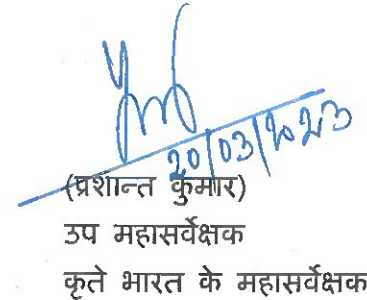 20/03/2023
(प्रशान्त कुमार)
उप महासर्वेक्षक
कृते भारत के महासर्वेक्षक